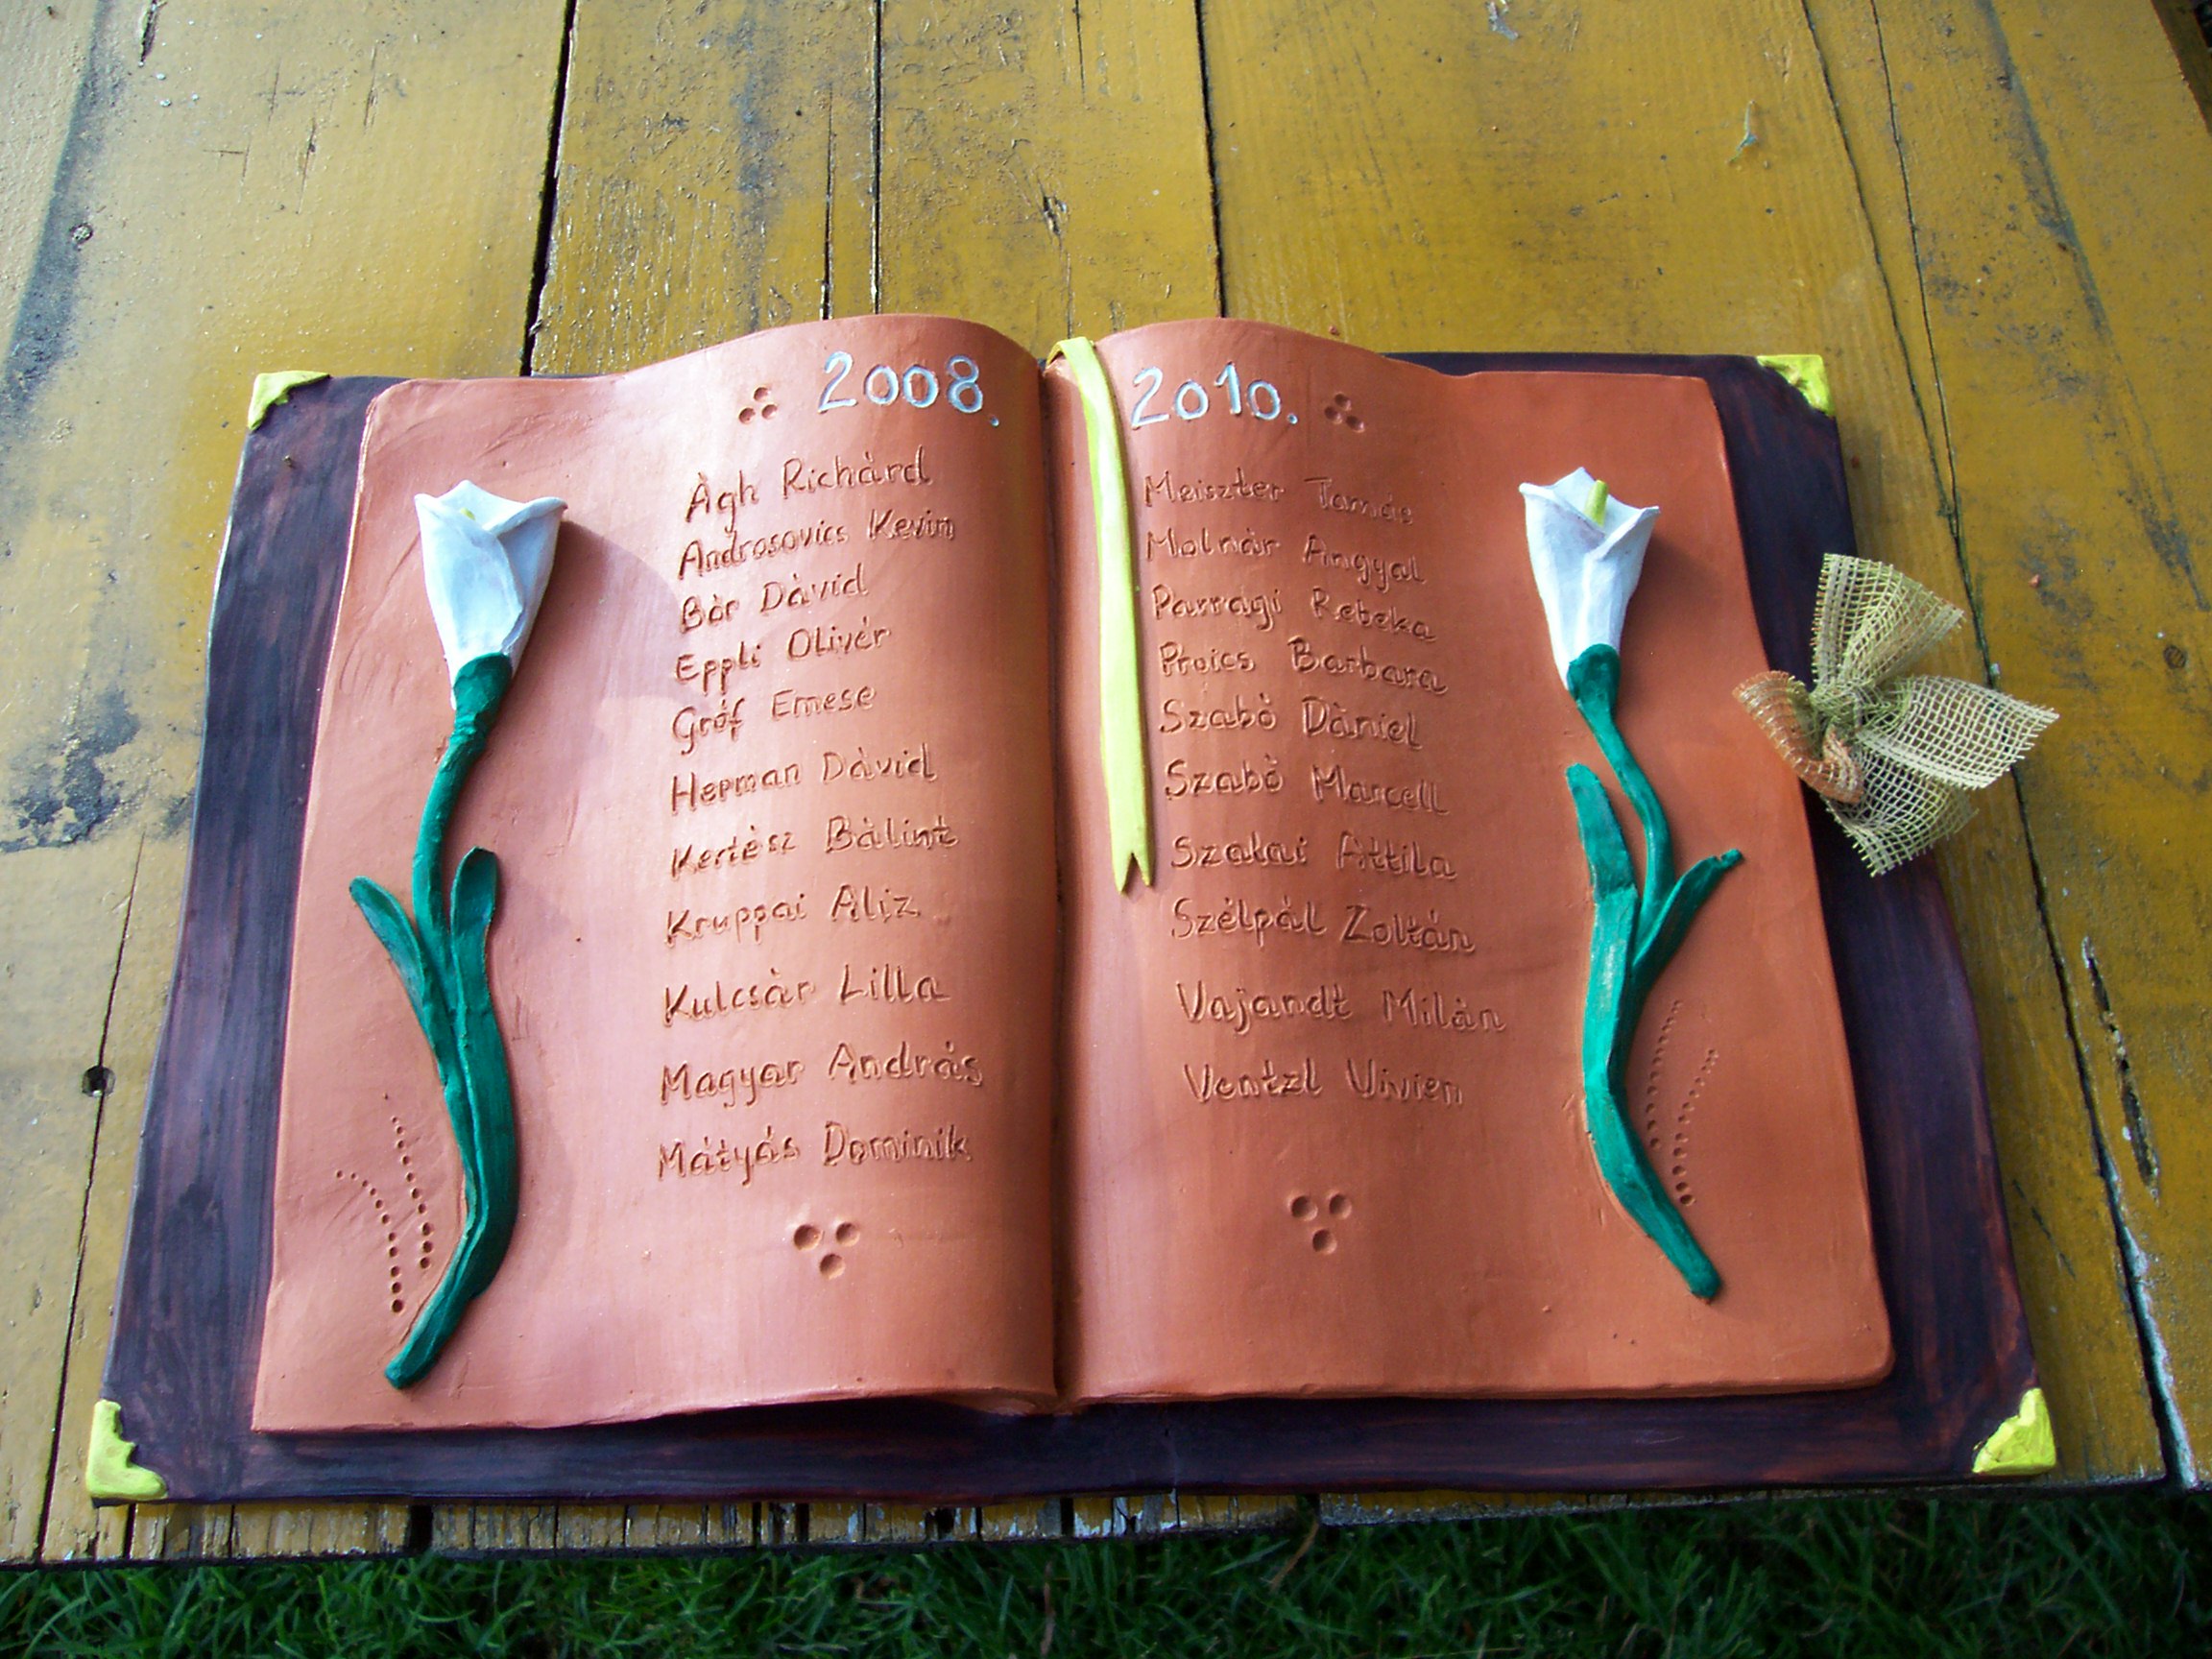 2008.
Àgh Richàrd
Androsovics Kevin
Bòr Dàvid
Eppli Olivér
Gróf Emese
Herman Dàvid
Kertèsz Bàlint
Kruppai Aliz
Kulcsàr Lilla
Magyar András
Mátyás Dominik
2010.
Meiszter Tamás
Molnàr Angyal
Parragi Rebeka
Proics Barbara
Szabò Dàniel
Szabò Marcell
Szakai Attila
Szélpál Zoltán
Vajandt Milán
Ventzl Vivien